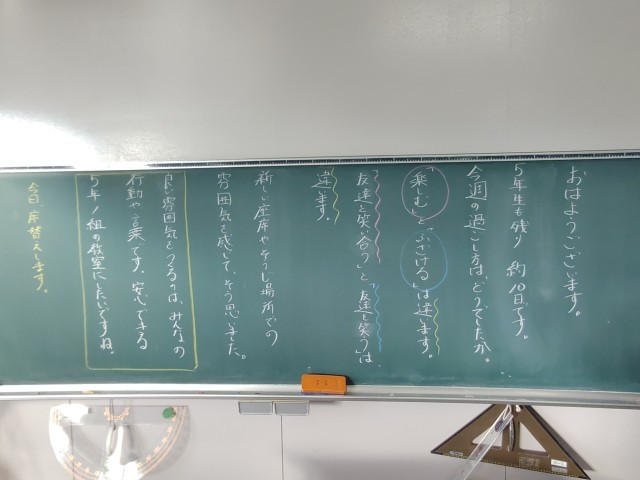 おはようございます。
5年生も残り 約10日です。
今週の過ごし方は、どうでしたか。
「楽しむ」と「ふざける」は違います。
「友達と笑い合う」と「友達を笑う」は
違います。
新しい座席やそうじ場所での
雰囲気を感じて、そう思いました。
良い雰囲気をつくるのは みんなの
行動や言葉です。安心できる
5年1組の教室にしたいですね。
今日、席替えします。